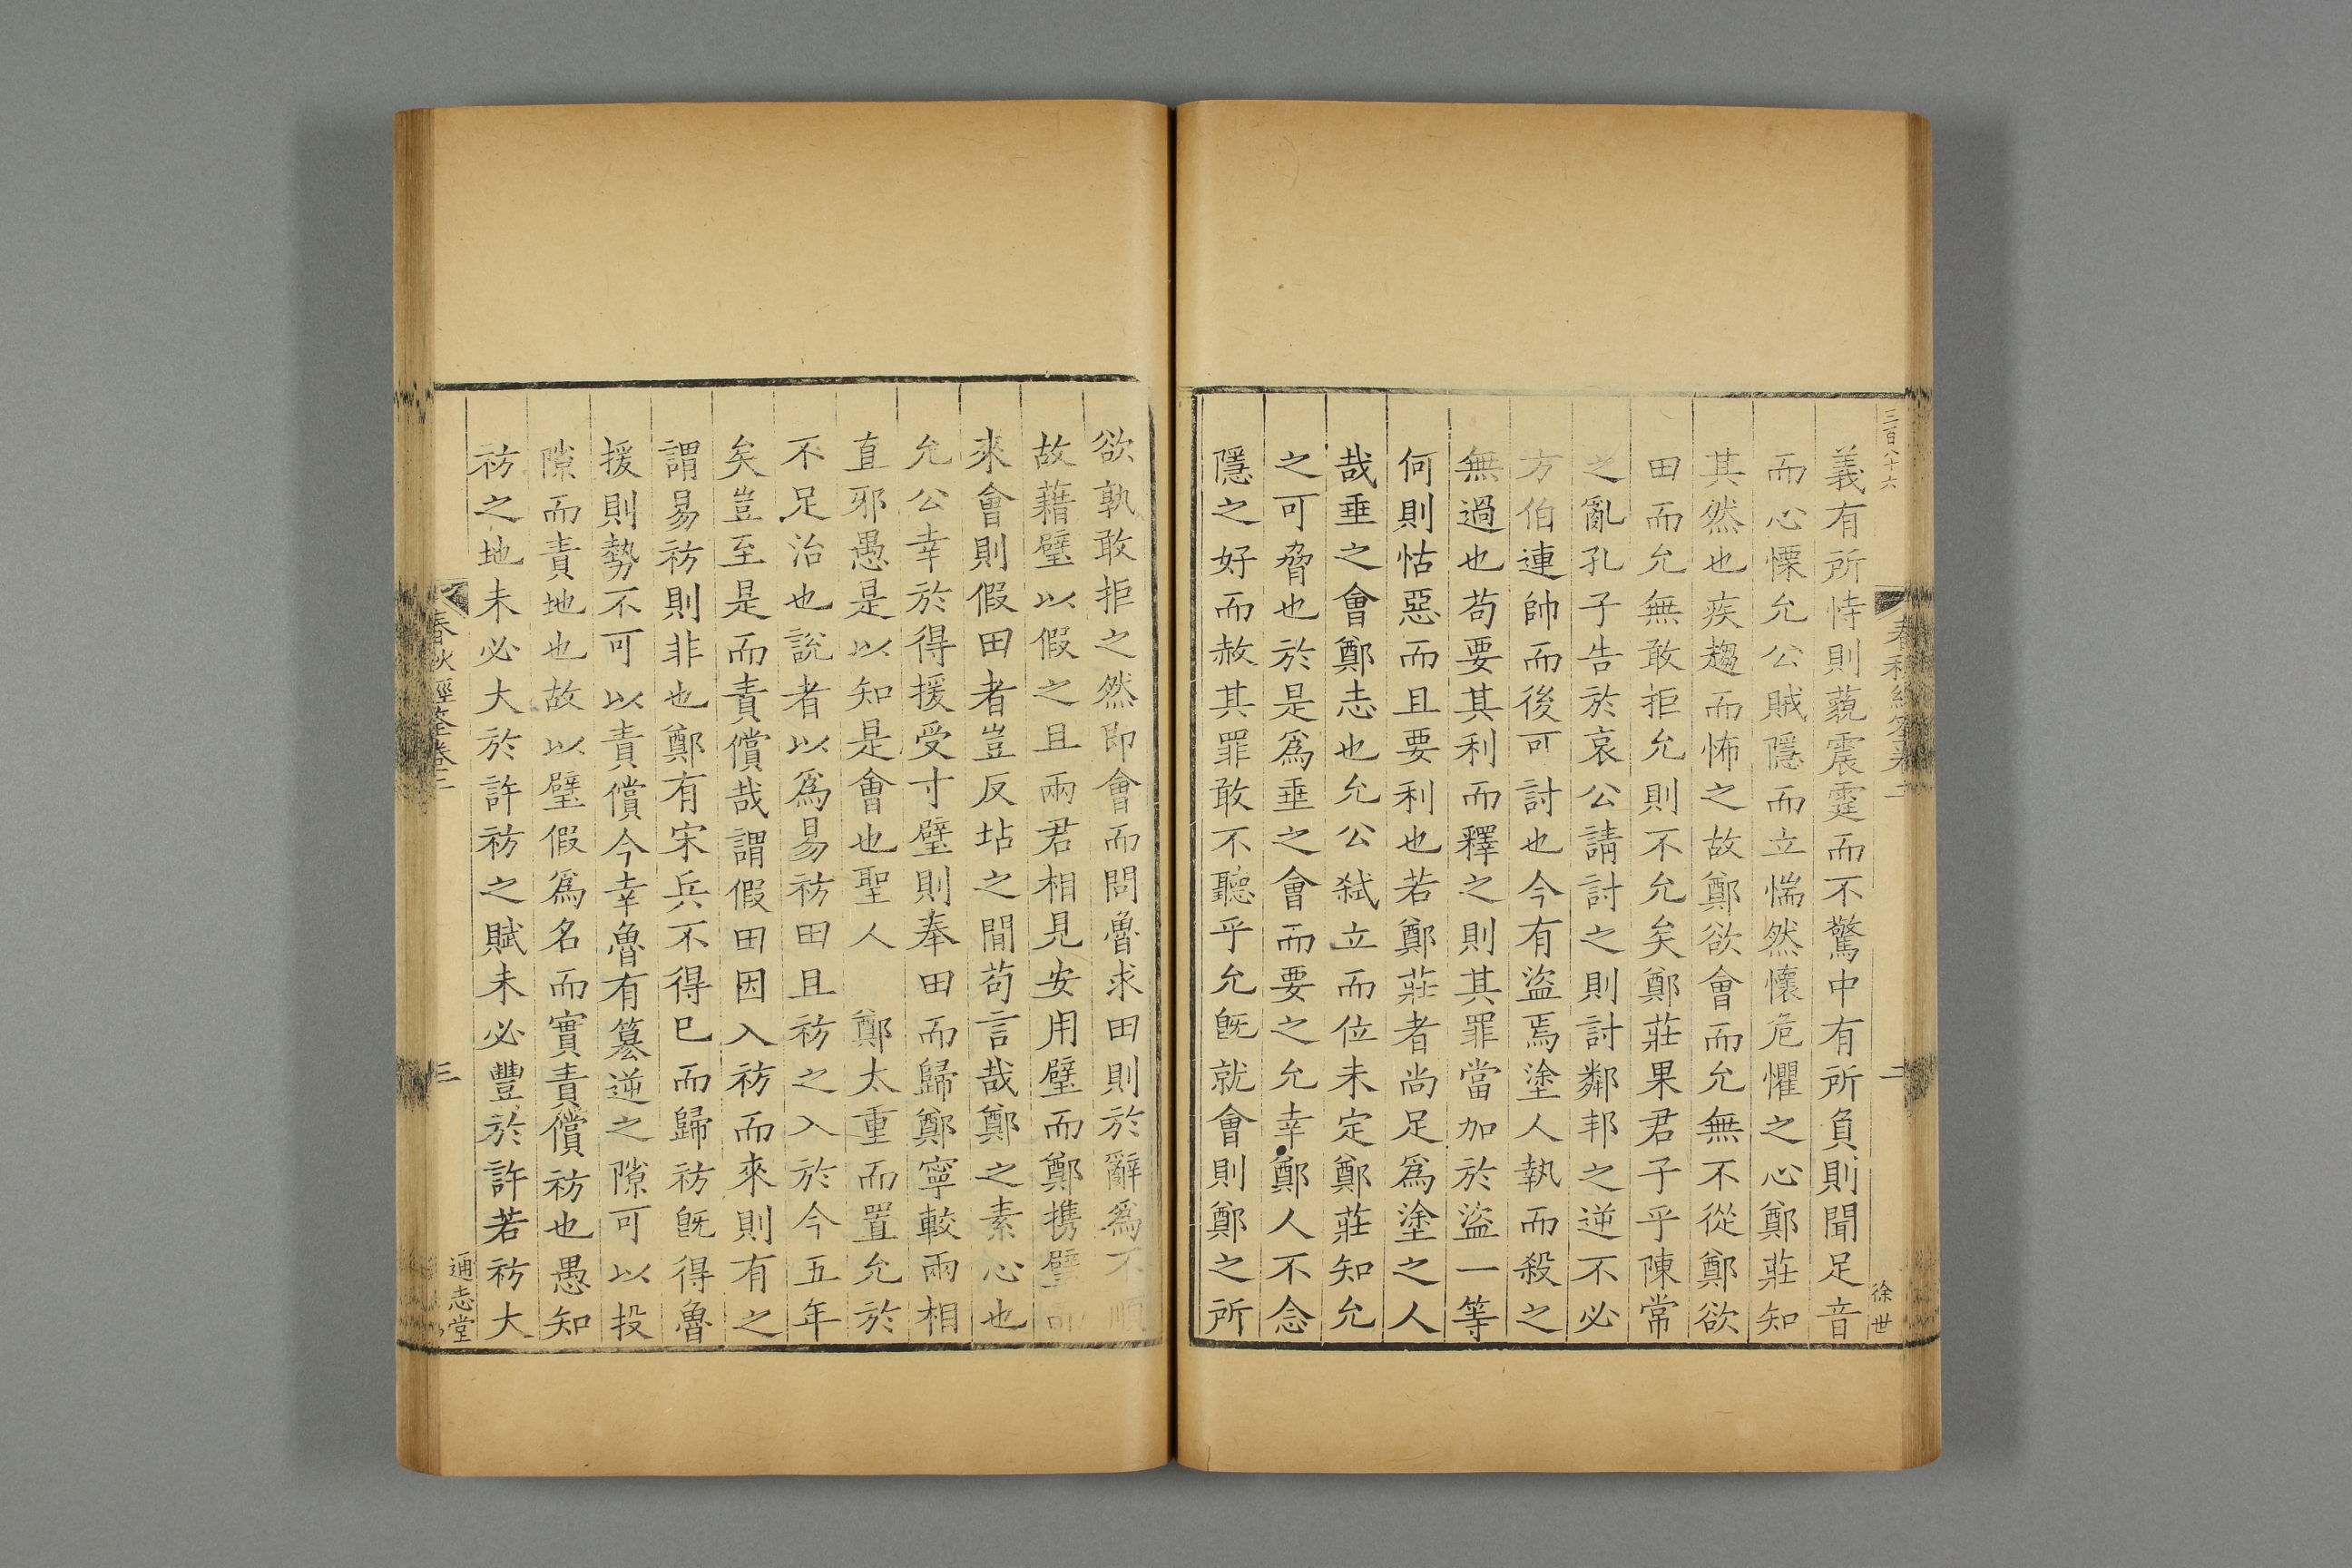 三百八十六
義有所恃則藐震霆而不驚中有所負則聞足音
而心慄允公賊隱而立惴然懷危懼之心鄭莊知
其然也疾趨而怖之故鄭欲會而允無不從鄭欲
田而允無敢拒允則不允矣鄭莊果君子乎陳常
之亂孔子告於哀公請討之則討鄰邦之逆不必
方伯連帥而後可討也今有盜焉塗人執而殺之
無過也苟要其利而釋之則其罪當加於盜一等
何則怙惡而且要利也若鄭莊者尚足爲塗之人
哉垂之會鄭志也允公弑立而位未定鄭莊知允
之可脅也於是爲垂之會而要之允幸鄭人不念
隱之好而赦其罪敢不聽乎允旣就會則鄭之所
徐世
二
欲孰敢拒之然即會而問魯求田則於辭爲不順
故藉璧以假之且兩君相見安用璧而鄭携璧而
來會則假田者豈反坫之間苟言哉鄭之素心也
允公幸於得援受寸璧則奉田而歸鄭寧較兩相
直邪愚是以知是會也聖人 鄭太重而置允於
不足治也說者以爲易祊田且祊之入於今五年
矣豈至是而責償哉謂假田因入祊而來則有之
謂易祊則非也鄭有宋兵不得已而歸祊旣得魯
援則勢不可以責償今幸魯有簒逆之隙可以投
隙而責地也故以璧假爲名而實責償祊也愚知
祊之地未必大於許祊之賦未必豐於許若祊大
春秋經筌卷二
三
通志堂